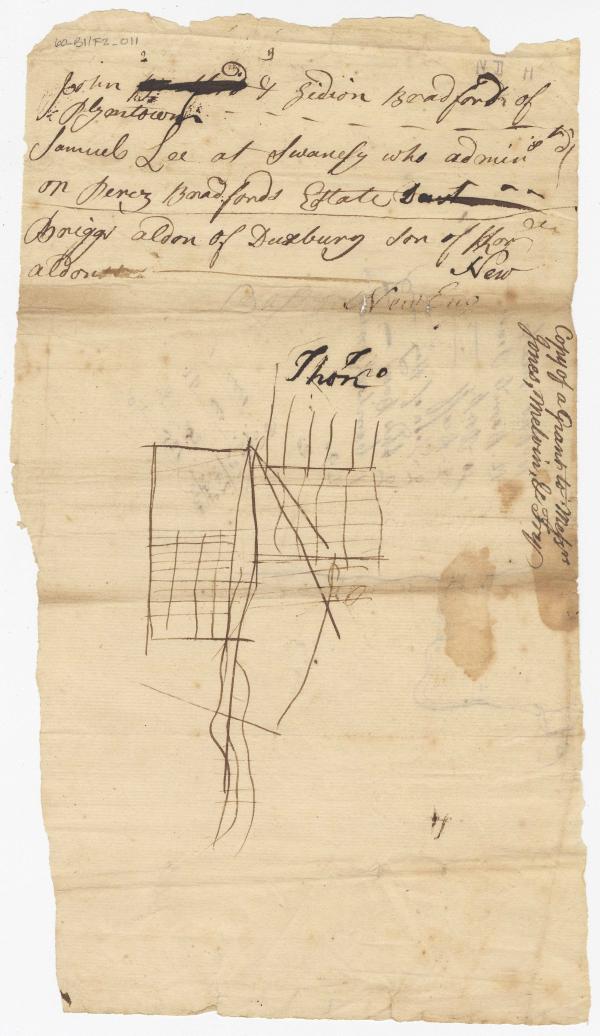 60-B1/F2-011
John & Gidion Bradfords of
Plymtown
Samuel Lee at Swanesy who admin
on Perez Bradfords Estate
Briggs aldon of Duxburg son of
aldon New
New Eng
Thon
Copy of a Grant to Messrs
Jones, Melvin, & Fry